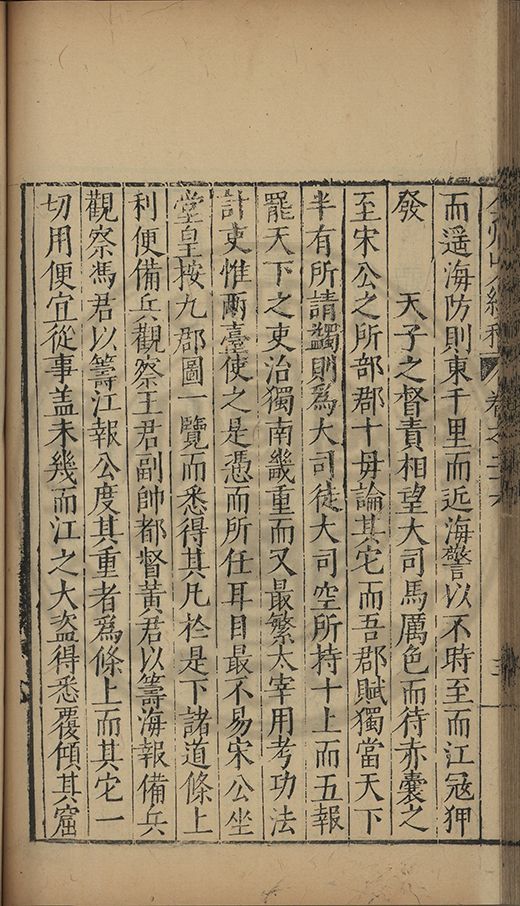 而遥海防則東千里而近海警以不時至而江寇狎
發　天子之督責相望大司馬厲色而待赤囊之
至宋公之所部郡十毋論其它而吾郡賦獨當天下
半有所請蠲則爲大司徒大司空所持十上而五報
罷天下之吏治獨南畿重而又最繁太宰用考功法
計吏惟兩臺使之是憑而所任耳目最不易宋公坐
堂皇按九郡圖一覽而悉得其凡於是下諸道條上
利便備兵觀察王君副帥都督黃君以籌海報備兵
觀察馮君以籌江報公度其重者爲條上而其它一
切用便宜從事盖未幾而江之大盗得悉覆傾其窟